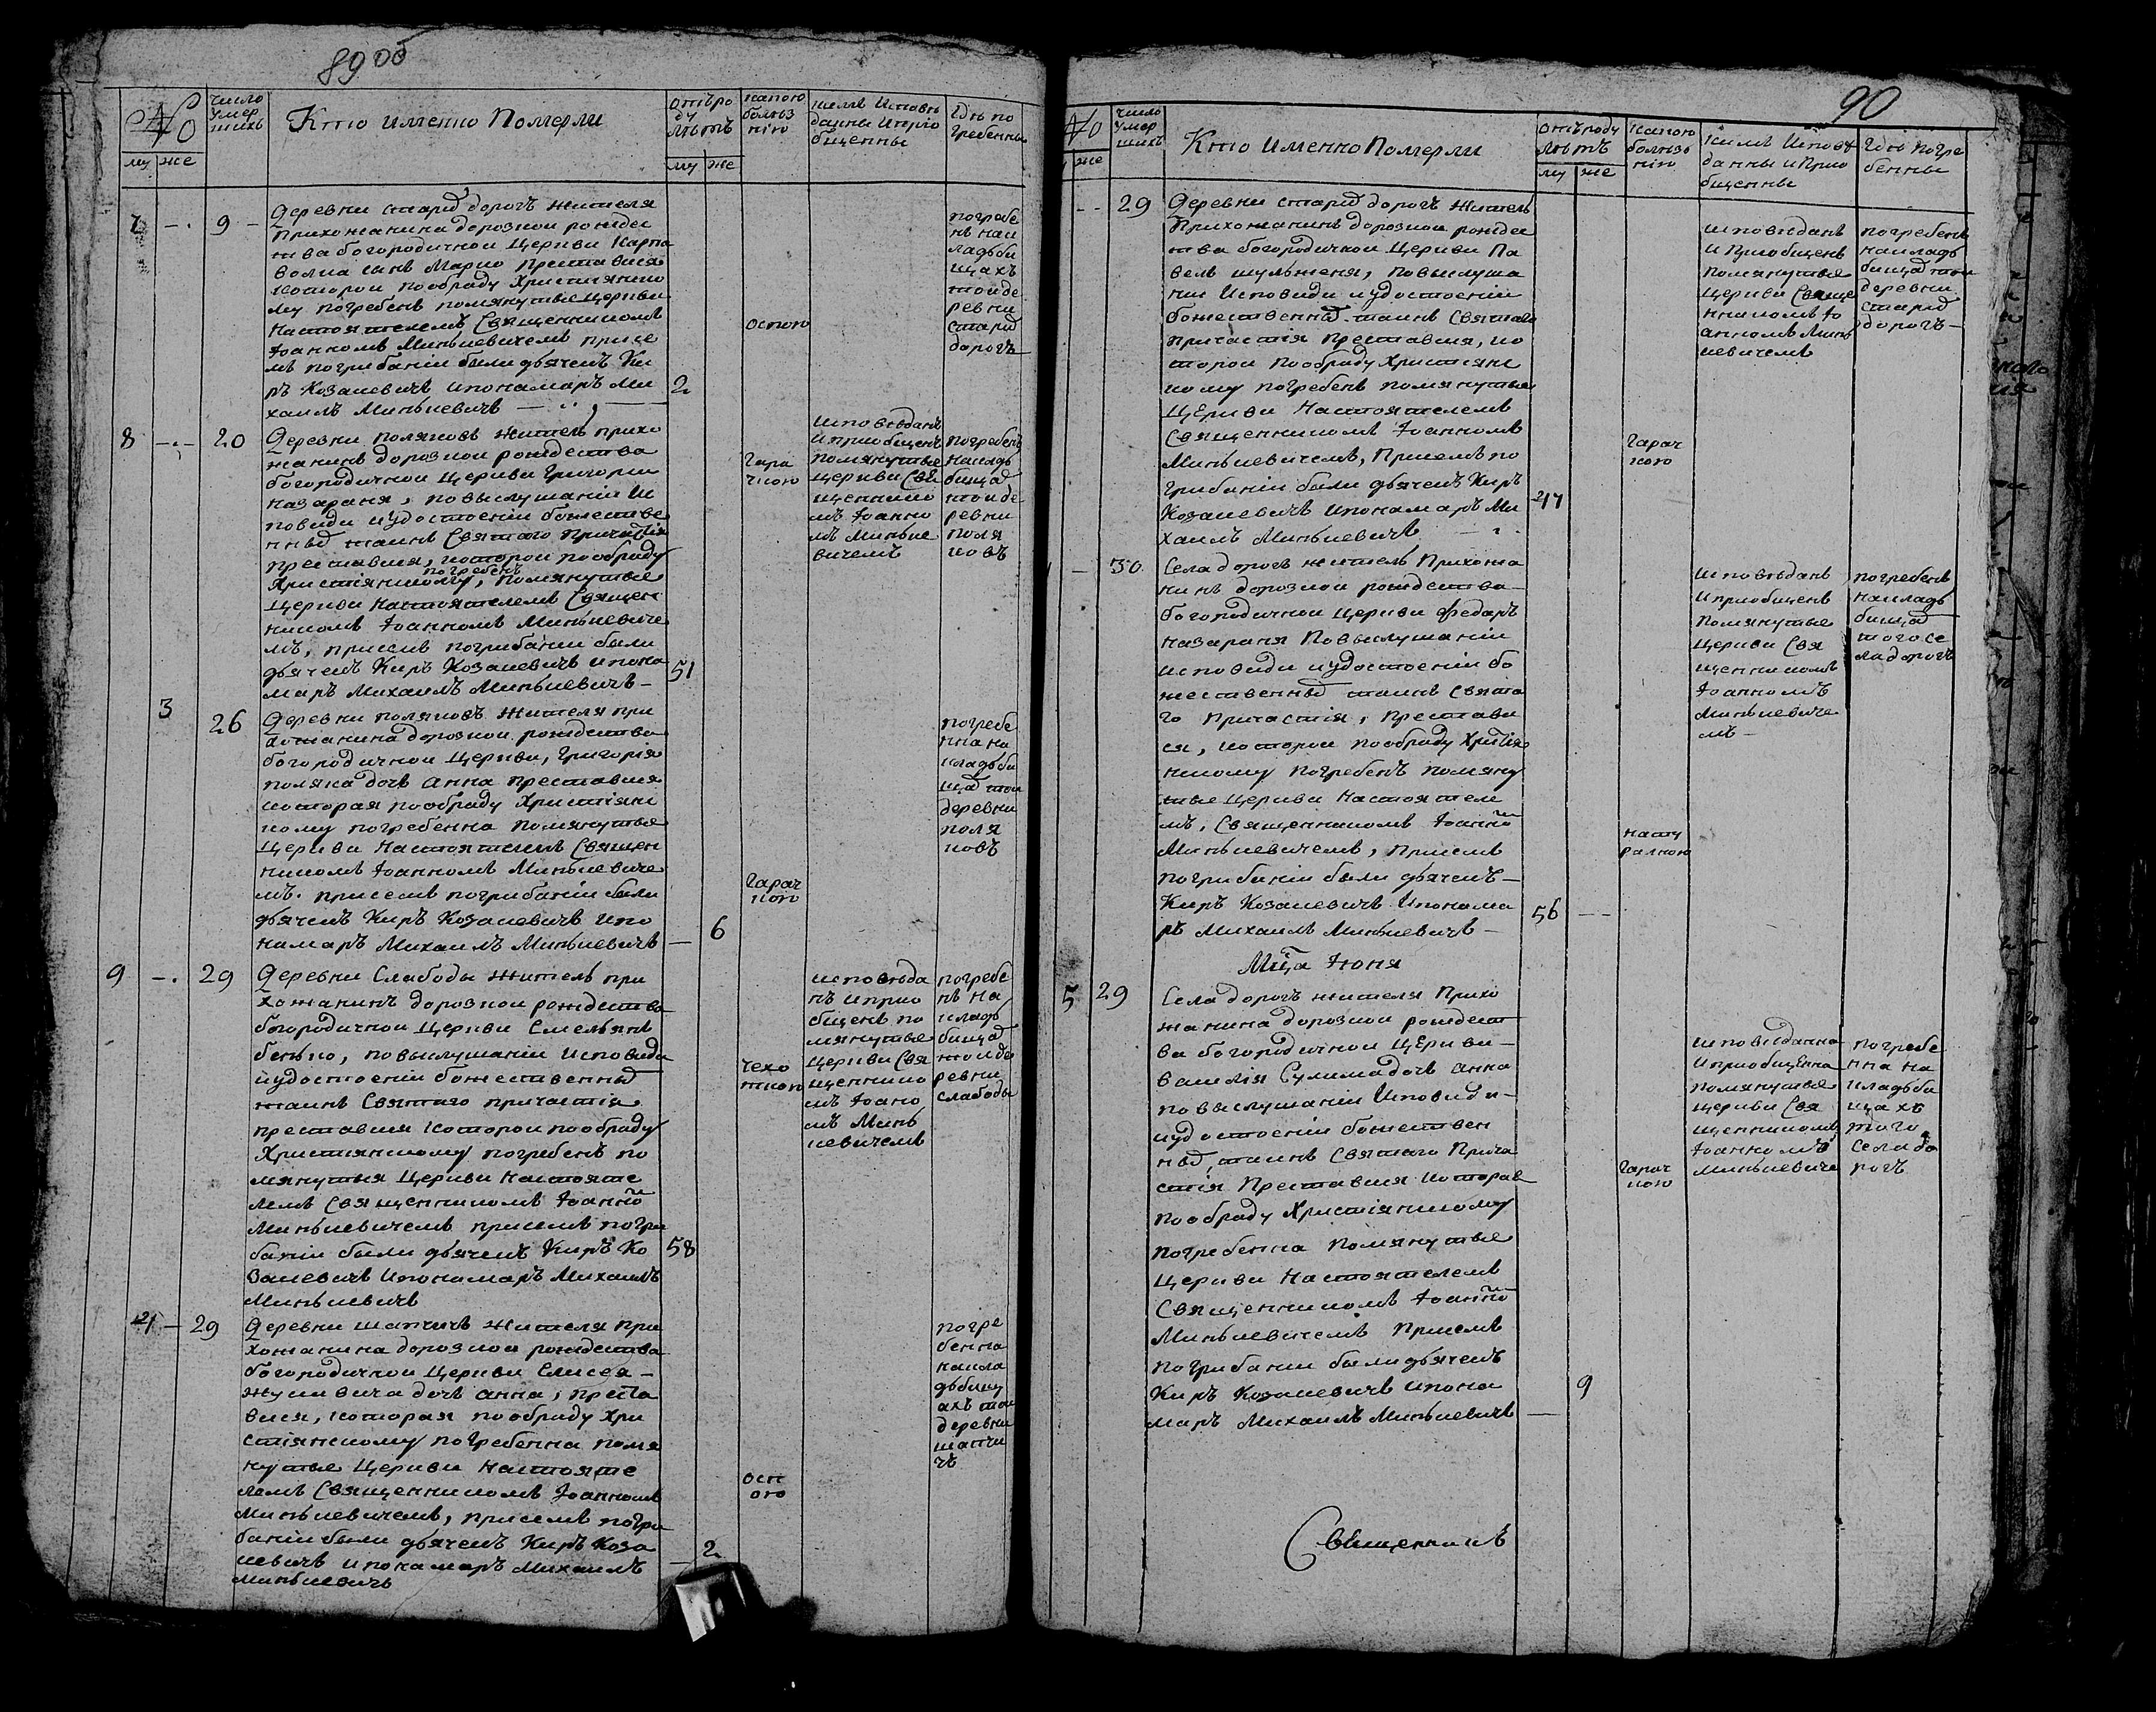 89об
№
число умер шихъ
Кто именно Померли
отъро ду лѣтъ
какою болѣз нію
кемъ Исповѣ данны Иприо бщенны
Гдѣ по гребенны
му же
му же
7 -. 9 -
Деревни старих дорогъ жителя
Прихожанина дорозкои рождес
тва богородичнои Церкви Карпа
Волка синъ Марко преставися
которои пообряду Християнско
му погребенъ помянутые Церкви
Настоятелемъ Священникомъ
Іоанномъ Минкевичемъ присе
мъ погрибании были дьячекъ Ки
ръ Козакевичъ ипонамаръ Ми
хаилъ Минькевичъ
2
оспою
погребе
нъ нак
ладьби
щахъ
тоиде
ревни
старих
дорогъ
8 -.- 20
Деревни поляковъ житель прихо
жанинъ дорозкои рождества
богородичнои Церкви Григории
назараня, повыслушании Ис
повиди иудостоении божестве
нных таинъ Святаго Причастія
преставися, которои пообряду
погребенъ
Християнскому, помянутые
Церкви Настоятелемъ Священ
никомъ Іоанномъ Минькевиче
мъ, присемъ погрибании были
дьячекъ Киръ Козакевичъ ипона
маръ Михаилъ Минькевичъ -
51
гаря
чкою
исповѣданъ
Иприобщенъ
помянутые
Церкви Свя
щеннико
мъ Іоанно
мъ Минке
вичемъ
погребенъ
накладь
бищах
тоиде
ревни
поля
ковъ
3
26
Деревни поляковъ жителя при
хожанина дорозкои рождества
богородичнои Церкви, Григорія
поляка дочь Анна преставися
которая пообряду Християнс
кому погребенна помянутые
Церкви Настоятелемъ Священ
никомъ Іоанномъ Минькевиче
мъ. присемъ погрибании были
дьячекъ Киръ Козакевичъ ипо
намаръ Михаилъ Минькевичъ
6
гаряч
кою
погребе
нна на
кладьби
щах тои
деревни
поля
ковъ
9 -. 29
Деревни Слабоды житель при
хожанинъ дорозкои рождества
богородичнои Церкви Емельянъ
бенько, повыслушании исповиди
иудостоении божественных
таинъ Святаго причастия
преставися которои пообряду
Християнскому погребенъ по
мянутыя Церкви Настояте
лемъ Священникомъ Іоанно
Минькевичемъ присемъ погри
бании были дьячекъ Киръ Ко
закевичъ ипонамаръ Михаилъ
Минькевичъ
58
чехо
ткою
исповѣда
нъ иприо
бщенъ по
мянутые
Церкви Свя
щеннико
мъ Іоано
мъ Минь
кевичемъ
погребе
нъ на
кладь
бищах
тоиде
ревни
слабоды
4 - 29
Деревни шапчичъ жителя при
хожанина дорозкои рождества
богородичнои Церкви Елисея -
дочь анна, преста
вися, которая пообряду Хри
стіянскому погребенна помя
нутые Церкви Настояте
лемъ Священникомъ Іоанномъ
Минькевичемъ, присемъ погри
бании были дьячекъ Киръ Коза
кевичъ ипонамаръ Михаилъ
Минькевичъ
2
осп
ою
погре
бенна
накла
дьбищ
ахъ тои
деревни
шапчи
чъ
90
№
же
число умер шихъ
Кто именно Померли
отъроду лѣтъ
му же
какою болѣзнію
Кемъ Исповѣ данны и Прио бщенны
Гдѣ погре бенны
-- 29
Деревни старих дорогъ житель
Прихожанинъ дорозкои рождес
тва богородичнои Церкви Па
велъ шульженя, повыслуша
нии Исповиди иудостоении
божественных таинъ Святаго
причастія Преставися, ко
торои пообряду Християнс
кому погребенъ помянутые
Церкви Настоятелемъ
Священникомъ Іоанномъ
Минькевичемъ, Присемъ по
грибании были дьячекъ Киръ
Козакевичъ ипонамаръ Ми
хаилъ Минькевичъ
47
гаряч
кою
исповѣданъ
и Приобщенъ
помянутые
Церкви Свяще
нникомъ Іо
анномъ Минь
кевичемъ
погребенъ
накладь
бищах тои
деревни
старих
дорогъ -
- 30
Села дорогъ житель Прихожа
нинъ дорозкои рождества
богородичнои Церкви Федаръ
назараня Повыслушании
исповиди иудостоении бо
жественных таинъ Свята
го причастія, преставив
ся, которои пообряду Христія
нскому погребенъ помяну
тые Церкви Настоятеле
мъ, Священникомъ Іоанно
Минькевичемъ, присемъ
погрибании были дьячекъ -
Киръ Козакевичъ Ипонама
ръ Михаилъ Минькевичъ -
56
нату
ралною
исповѣданъ
иприобщенъ
помянутые
Церкви Свя
щенникомъ
Іоанномъ
Минькевиче
мъ -
погребенъ
накладь
бищах
того се
ла дорогъ
Мца Июня
5 29
Села дорогъ жителя Прихо
жанина дорозкои рождест
ва богородичнои Церкви -
Василія Сулима дочь анна
повыслушании Исповиди -
иудостоении божествен
ных, таинъ Святаго Прича
стія Преставися которая
пообряду Християнскому
погребенна Помянутые
Церкви Настоятелемъ
Священникомъ Іоанно
Минькевичемъ Присемъ
погрибании были дьячекъ
Киръ Козакевичъ ипона
маръ Михаилъ Минькевичъ
9
гаряч
кою
исповѣданна
иприобщенна
помянутые
Церкви Свя
щенникомъ
Іоанномъ
Минькевиче
погребе
нна на
кладьби
щахъ
того
села до
рогъ
Священникъ